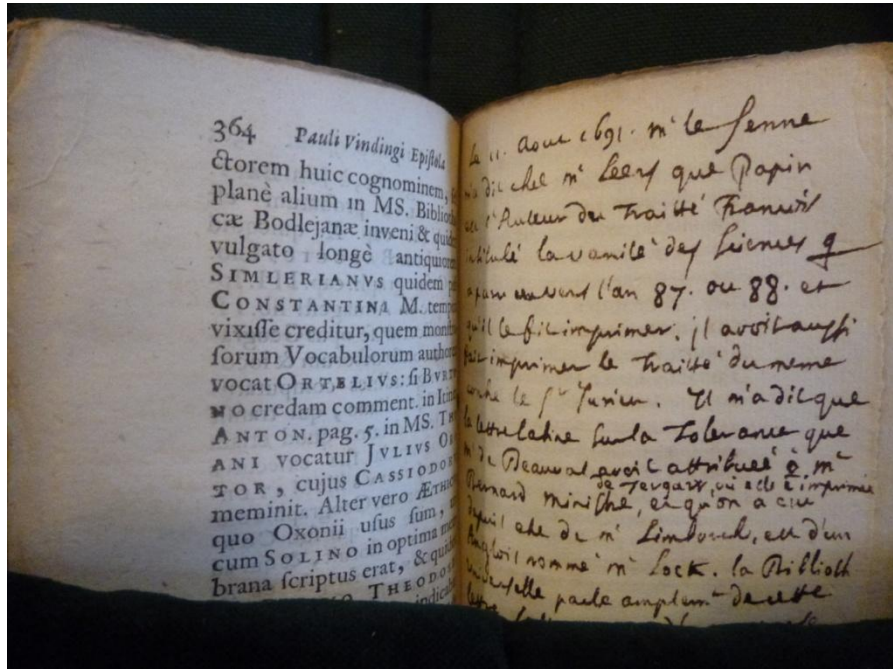 364 Pauli Vindingi Epistola
ctorem huic cognominem,
planè alium in MS. Biblioth
cæ Bodlejanæ inveni & quidem
vulgato longè antiquiorem
SIMLERIANVS quidem
CONSTANTINI M. tempo
vixisse creditur, quem monst
forum Vocabulorum authorem
vocat ORTELIVS: si BVRT
NO credam comment. in Itin
ANTON. pag. 5. in MS. TH
ANI vocatur JVLIVS OR
TOR, cujus CASSIODOR
meminit. Alter vero ÆTHIC
quo Oxonii usus sum,
cum SOLINO in optima mem
brana scriptus erat, & quidem
THEODOS
indicul
Le 11. Aout 1691. mr le Senne
m'a dit chez mr Leers que Papin
est l'Auteur du Traitté Francois
intitulé la vanité des sciences q
a paru vers l'an 87. ou 88. et
qu'il le fit imprimer. jl avoit aussi
fait imprimer le Traitté du meme
contre le Sr Jurieu. Il m'a dit que
la lettre latine sur la Tolerance que
mr de Beauval avoit attribuée à mr
Bernard ministre, et qu'on a cru
de Tergaw, où elle è imprimée
depuis etre de mr Limborch, est d'un
Anglois nommé mr Lock. la Biblioth
universelle parle amplemt de cette
lettre